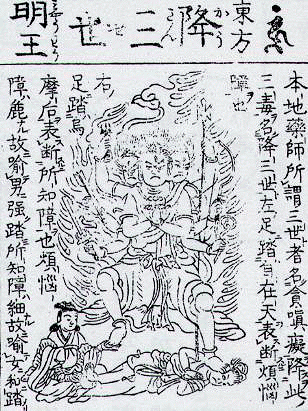 東方
降三世明王
本地藥師所謂三世者名貪嗔癡降此
三毒名降三世左足踏自在天表斷煩惱
障也
右
足踏烏
摩后表斷所知障也煩惱
障麁故喩男强踏所知障細故喩女和踏